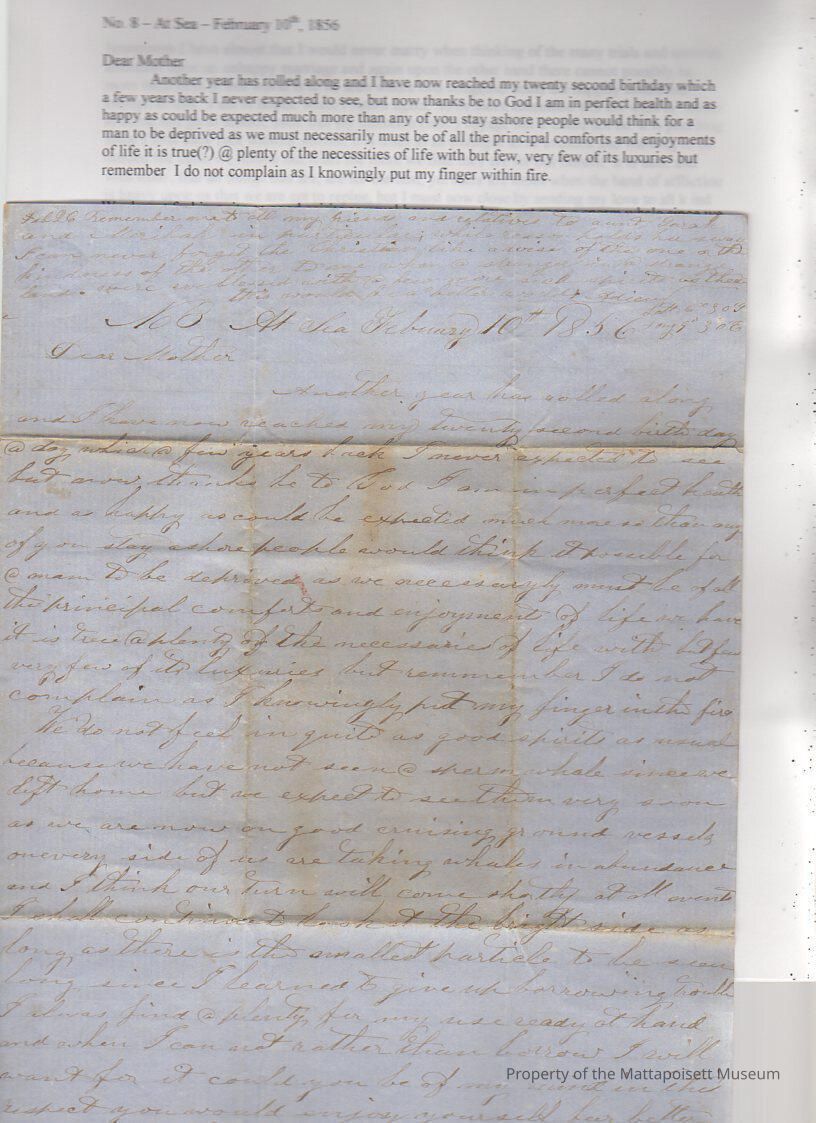 No. 8 – At Sea – February 10th, 1856
Dear Mother
Another year has rolled along and I have now reached my twenty second birthday which
a few years back I never expected to see, but now thanks be to God I am in perfect health and as
happy as could be expected much more than any of you stay ashore people would think for a
man to be deprived as we must necessarily must be of all the principal comforts and enjoyments
of life it is true(?) @ plenty of the necessities of life with but few, very few of its luxuries but
remember I do not complain as I knowingly put my finger within fire.
Remember me to all my friends and relatives to aunt
and in particular
I can never forget the Christian like
kindness of the other to me when a stranger in a strange
land were we blessed with a few more such spirits as these
it would be a better world
No 8 At Sea February 10th 1856
Dear Mother
Another year has rolled along
and I have now reached my twenty second birth day
@ day which @ few years back I never expected to see
but now thanks be to God I am in perfect health
and as happy as could be expected much more so than any
of you stay ashore people would think it possible for
@ man to be deprived as we necessaryly must be of all
the principal comforts and enjoyments of life we have
it is true @ plenty of the necessaries of life with but few
very few of its luxuries but remmember I do not
complain as I knowingly put my finger in the fire
We do not feel in quite as good spirits as usual
because we have not seen @ sperm whale since we
left home but we expect to see them very soon
as we are now on good cruising ground vessels
on every side of us are taking whales in abundance
and I think our turn will come shortly at all events
I shall continue to look at the bright side as
long as there is the smallest particle to be seen
long since I learned to give up borrowing trouble
I always find @ plenty for my use ready at hand
and when I can not rather than borrow I will
want for it could you be of my mind in this
respect you would enjoy yourself far better
Property of the Mattapoisett Museum